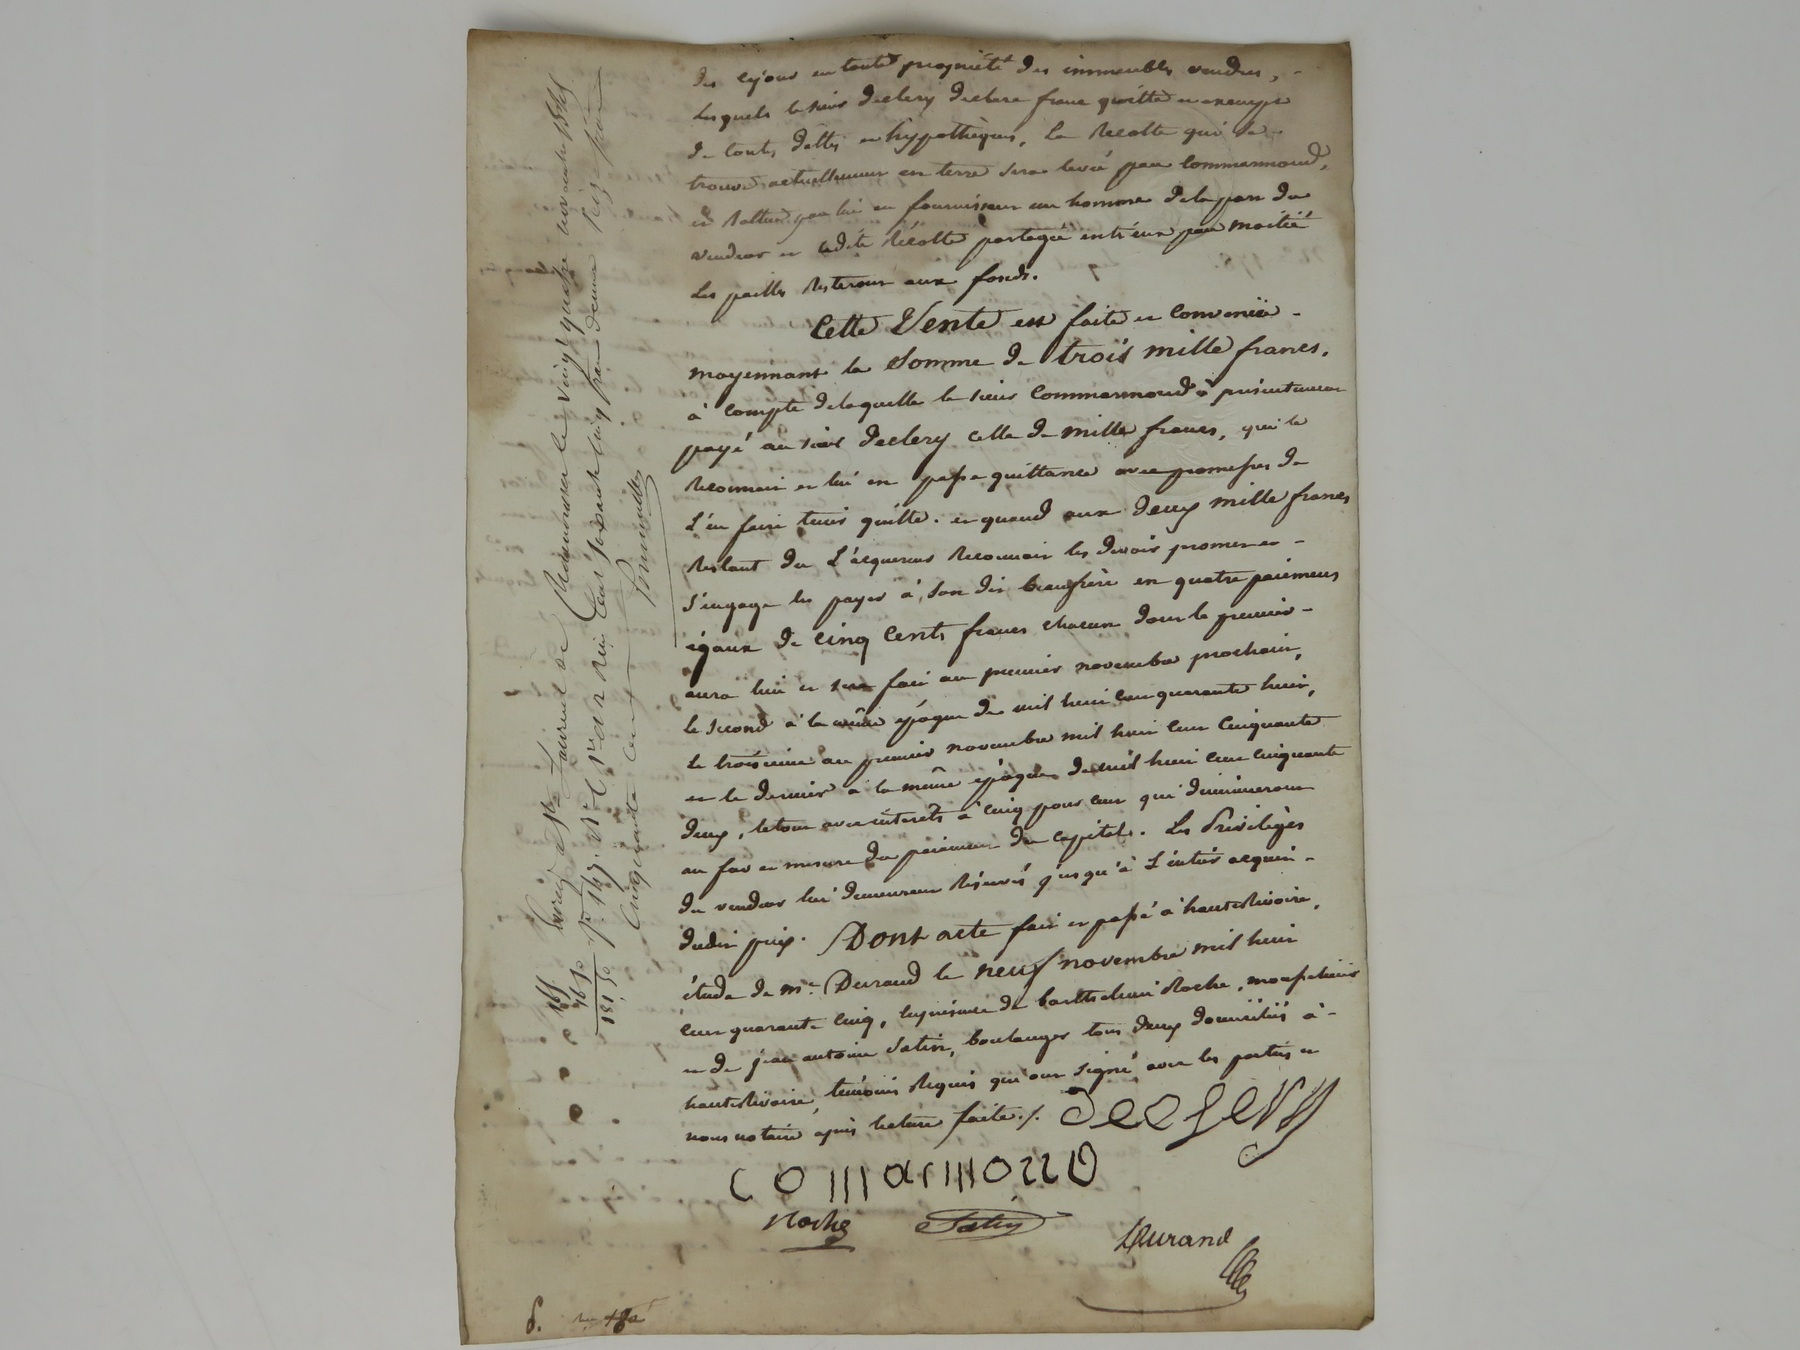 dès ce jour en toute propriété des immeubles vendus,
lesquels le sieur Declery declare franc quitte et exempt
de touts dettes et hypothèques, la recolte qui se
trouve actuellement en terre sera levée par Commarmond,
et battue par lui en fournissant un homme de la part du
vendeur et ladite récolte partagée entr'eux par moitié
les pailles resteront aux fonds.
Cette Vente est faite et convenüe
moyennant la Somme de trois mille francs,
à compte de laquelle le sieur Commarmond à présentement
payé au sieur Declery celle de mille francs, qui le
reconnait et lui en passe quittance avec promesses de
l'en faire tenir quitte. et quand aux deux mille francs
restant du l'acquereur reconnait les devoir promet et
s'engage les payer à son dit beaufrère en quatre paiemens
égaux de cinq cents francs chacun dont le premier
aura lieu et sera fait au premier novembre prochain,
le second à la même époque de mil huit cent quarante huit,
le troisieme au premier novembre mil huit cent cinquante
et le dernier à la même époque de mil huit cent cinquante
deux, le tout avec intérêts à cinq pour cent qui diminueront
au fur et mesure du paiement du capital. Les Privilèges
du vendeur lui demeurent réservés jusqu'à l'entier acquit
dudit prix. Dont acte fait et passé à hauterivoire,
étude de me. Durand le neuf novembre mil huit
cent quarante cinq, en présence de Barthelemi Roche,
et de jean antoine Satin, boulanger tous deux domiciliés à
hauterivoire, témoins requis qui ont signé avec les parties et
nous notaire après lecture faite./. Declery
comarmond
Roche Satin
Durand
Enregistré à St Laurent de Chamousset le vingt quatre novembre 1845
fo 147 reçu cent soixante cinq francs decime seize francs
cinquante cent
165
16 50
181 50